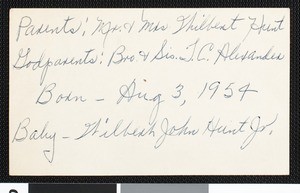 Parents; Mr. & Mrs Wilbert Hunt
Godparents: Bro & Sis. T.C. Alexander
Born - Aug 3, 1954
Baby - Wilbert John Hunt Jr.